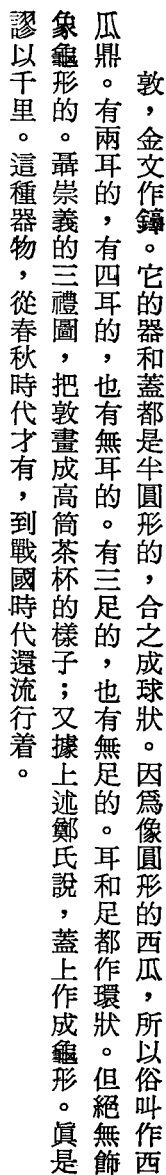 敦，金文作鐓。它的器和蓋都是半圓形的，合之成球狀。因爲像圓形的西瓜，所以俗叫作西
瓜鼎。有兩耳的，有四耳的，也有無耳的。有三足的，也有無足的。耳和足都作環狀。但絕無飾
象龜形的。聶崇義的三禮圖，把敦畫成高筒茶杯的樣子；又據上述鄭氏說，蓋上作成龜形。眞是
謬以千里。這種器物，從春秋時代才有，到戰國時代還流行着。